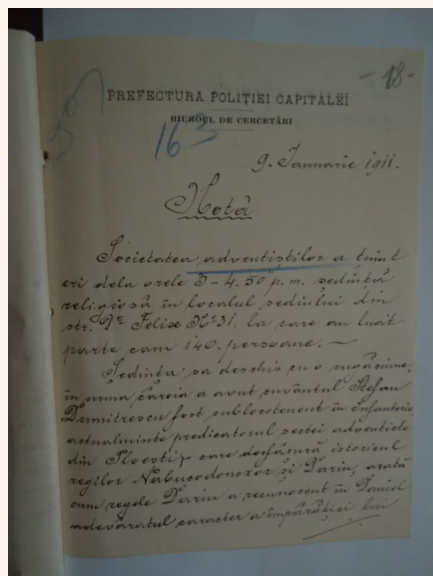 - 18 -
PREFECTURA POLIȚIEI CAPITALEI
BIUROUL DE CERCETĂRI
163
9. Ianuarie 1911.
Notă
Societatea adventiștilor a ținut
eri dela orele 3 - 4.50 p.m. ședință
religiosă în localul sediului din
str. Dr Felix No 31. la care au luat
parte cam 140. persoane. —
Ședința sa deschis cu o rugăciune,
în urma căreia a avut cuvântul Ștefan
Dumitrescu fost sublocotenent în Infanterie
actualminte predicatorul sectei adventiste
din Ploești, care desfășură istoricul
regilor Nabucodonozor și Dariu, arată
cum regele Dariu a recunoscut în Daniel
adevăratul caracter a împărăției lui